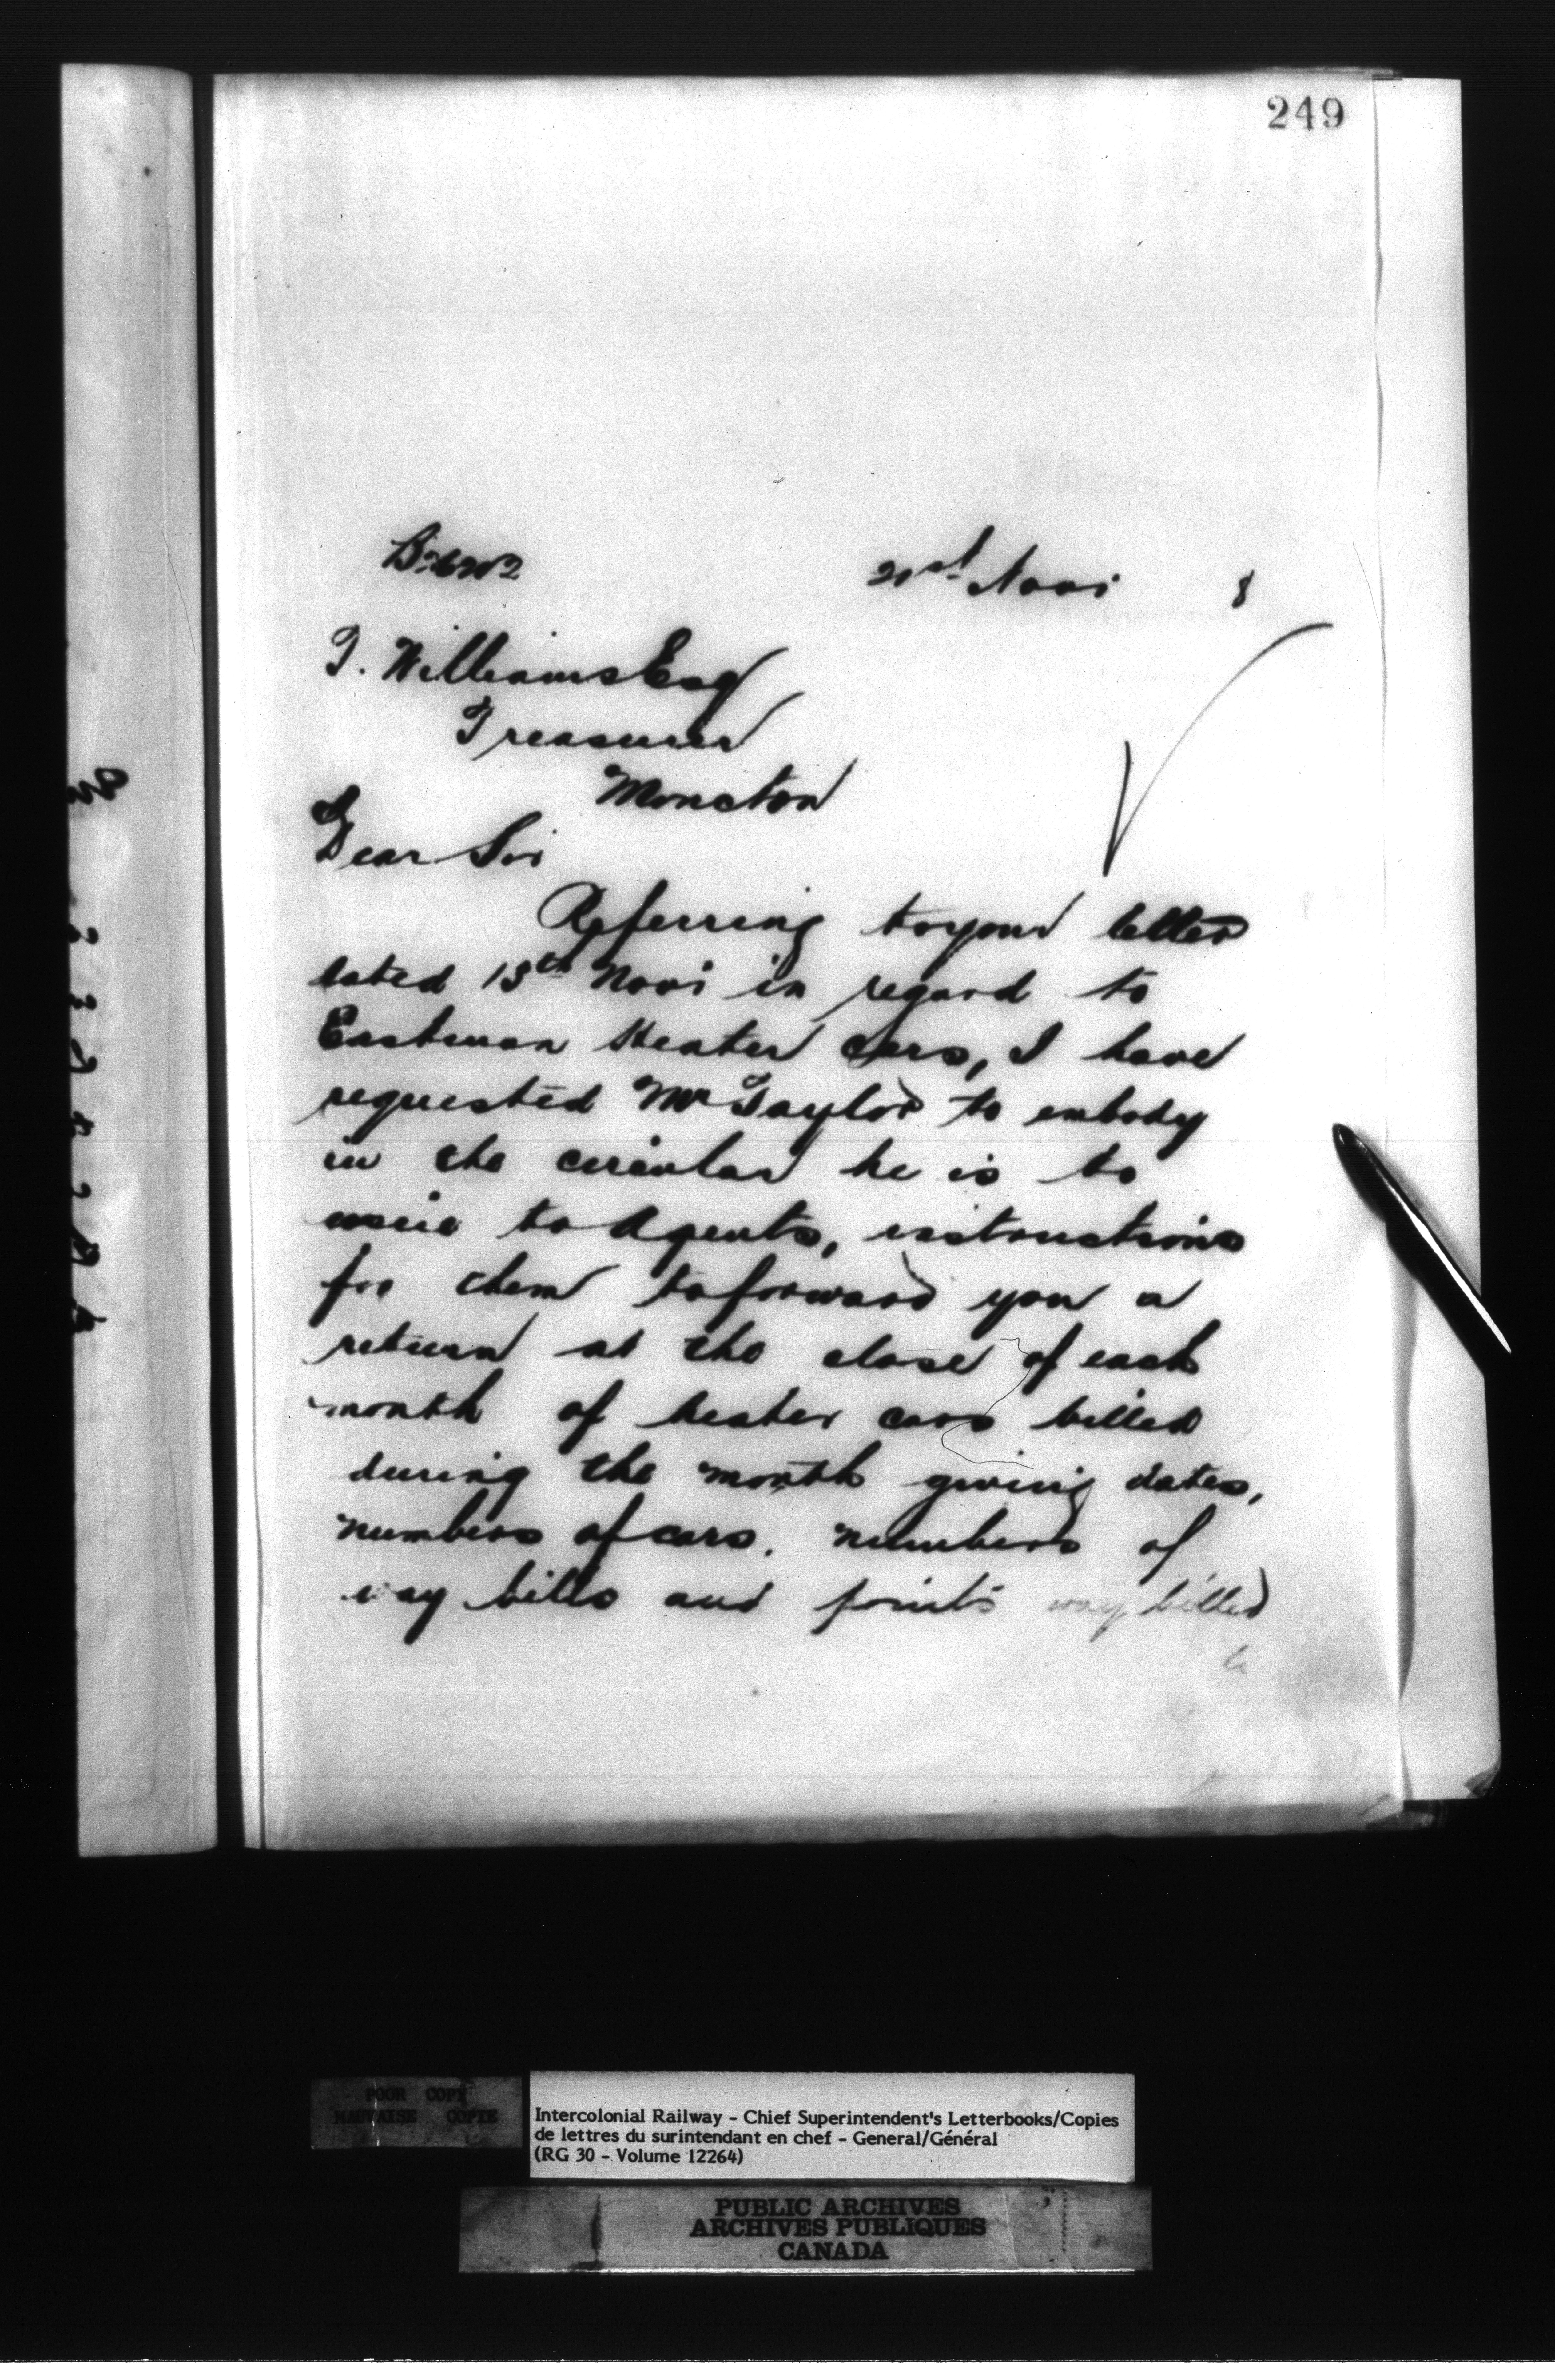 249
21st Novr 8
T. Williams Esq
Treasurer
Moncton
Dear Sir
Referring to your letter
dated 13th Novr in regard to
Eastman Heater cars, I have
requested Mr Taylor to embody
in the circular he is to
issue to Agents, instructions
for them to forward you a
return at the close of each
month of heater cars billed
during the month giving dates,
numbers of cars, numbers of
way bills and points way billed
POOR COPY
MAUVAISE COPIE
Intercolonial Railway - Chief Superintendent's Letterbooks/Copies
de lettres du surintendant en chef - General/Général
(RG 30 - Volume 12264)
PUBLIC ARCHIVES
ARCHIVES PUBLIQUES
CANADA